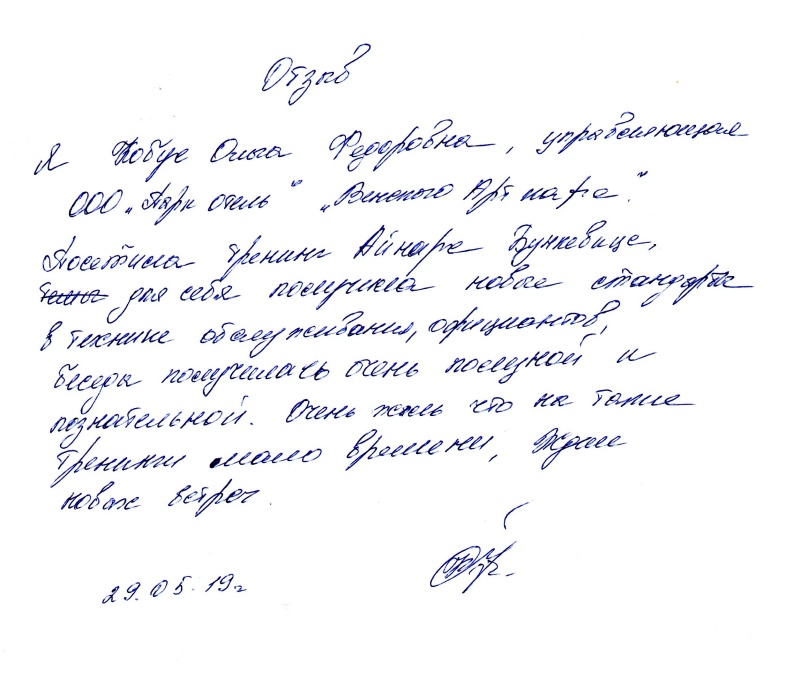 Отзыв
Я Кобус Ольга Федоровна, управляющая
ООО „Парк отель" „Венского Арт кафе".
Посетила тренинг Айнара Бункевице,
для себя получила новые стандарты
в технике обслуживания, официантов,
беседы получилась очень полезной и
познательной. Очень жаль что на такие
тренинги мало времени, Ждем
новых встреч.
29.05.19г